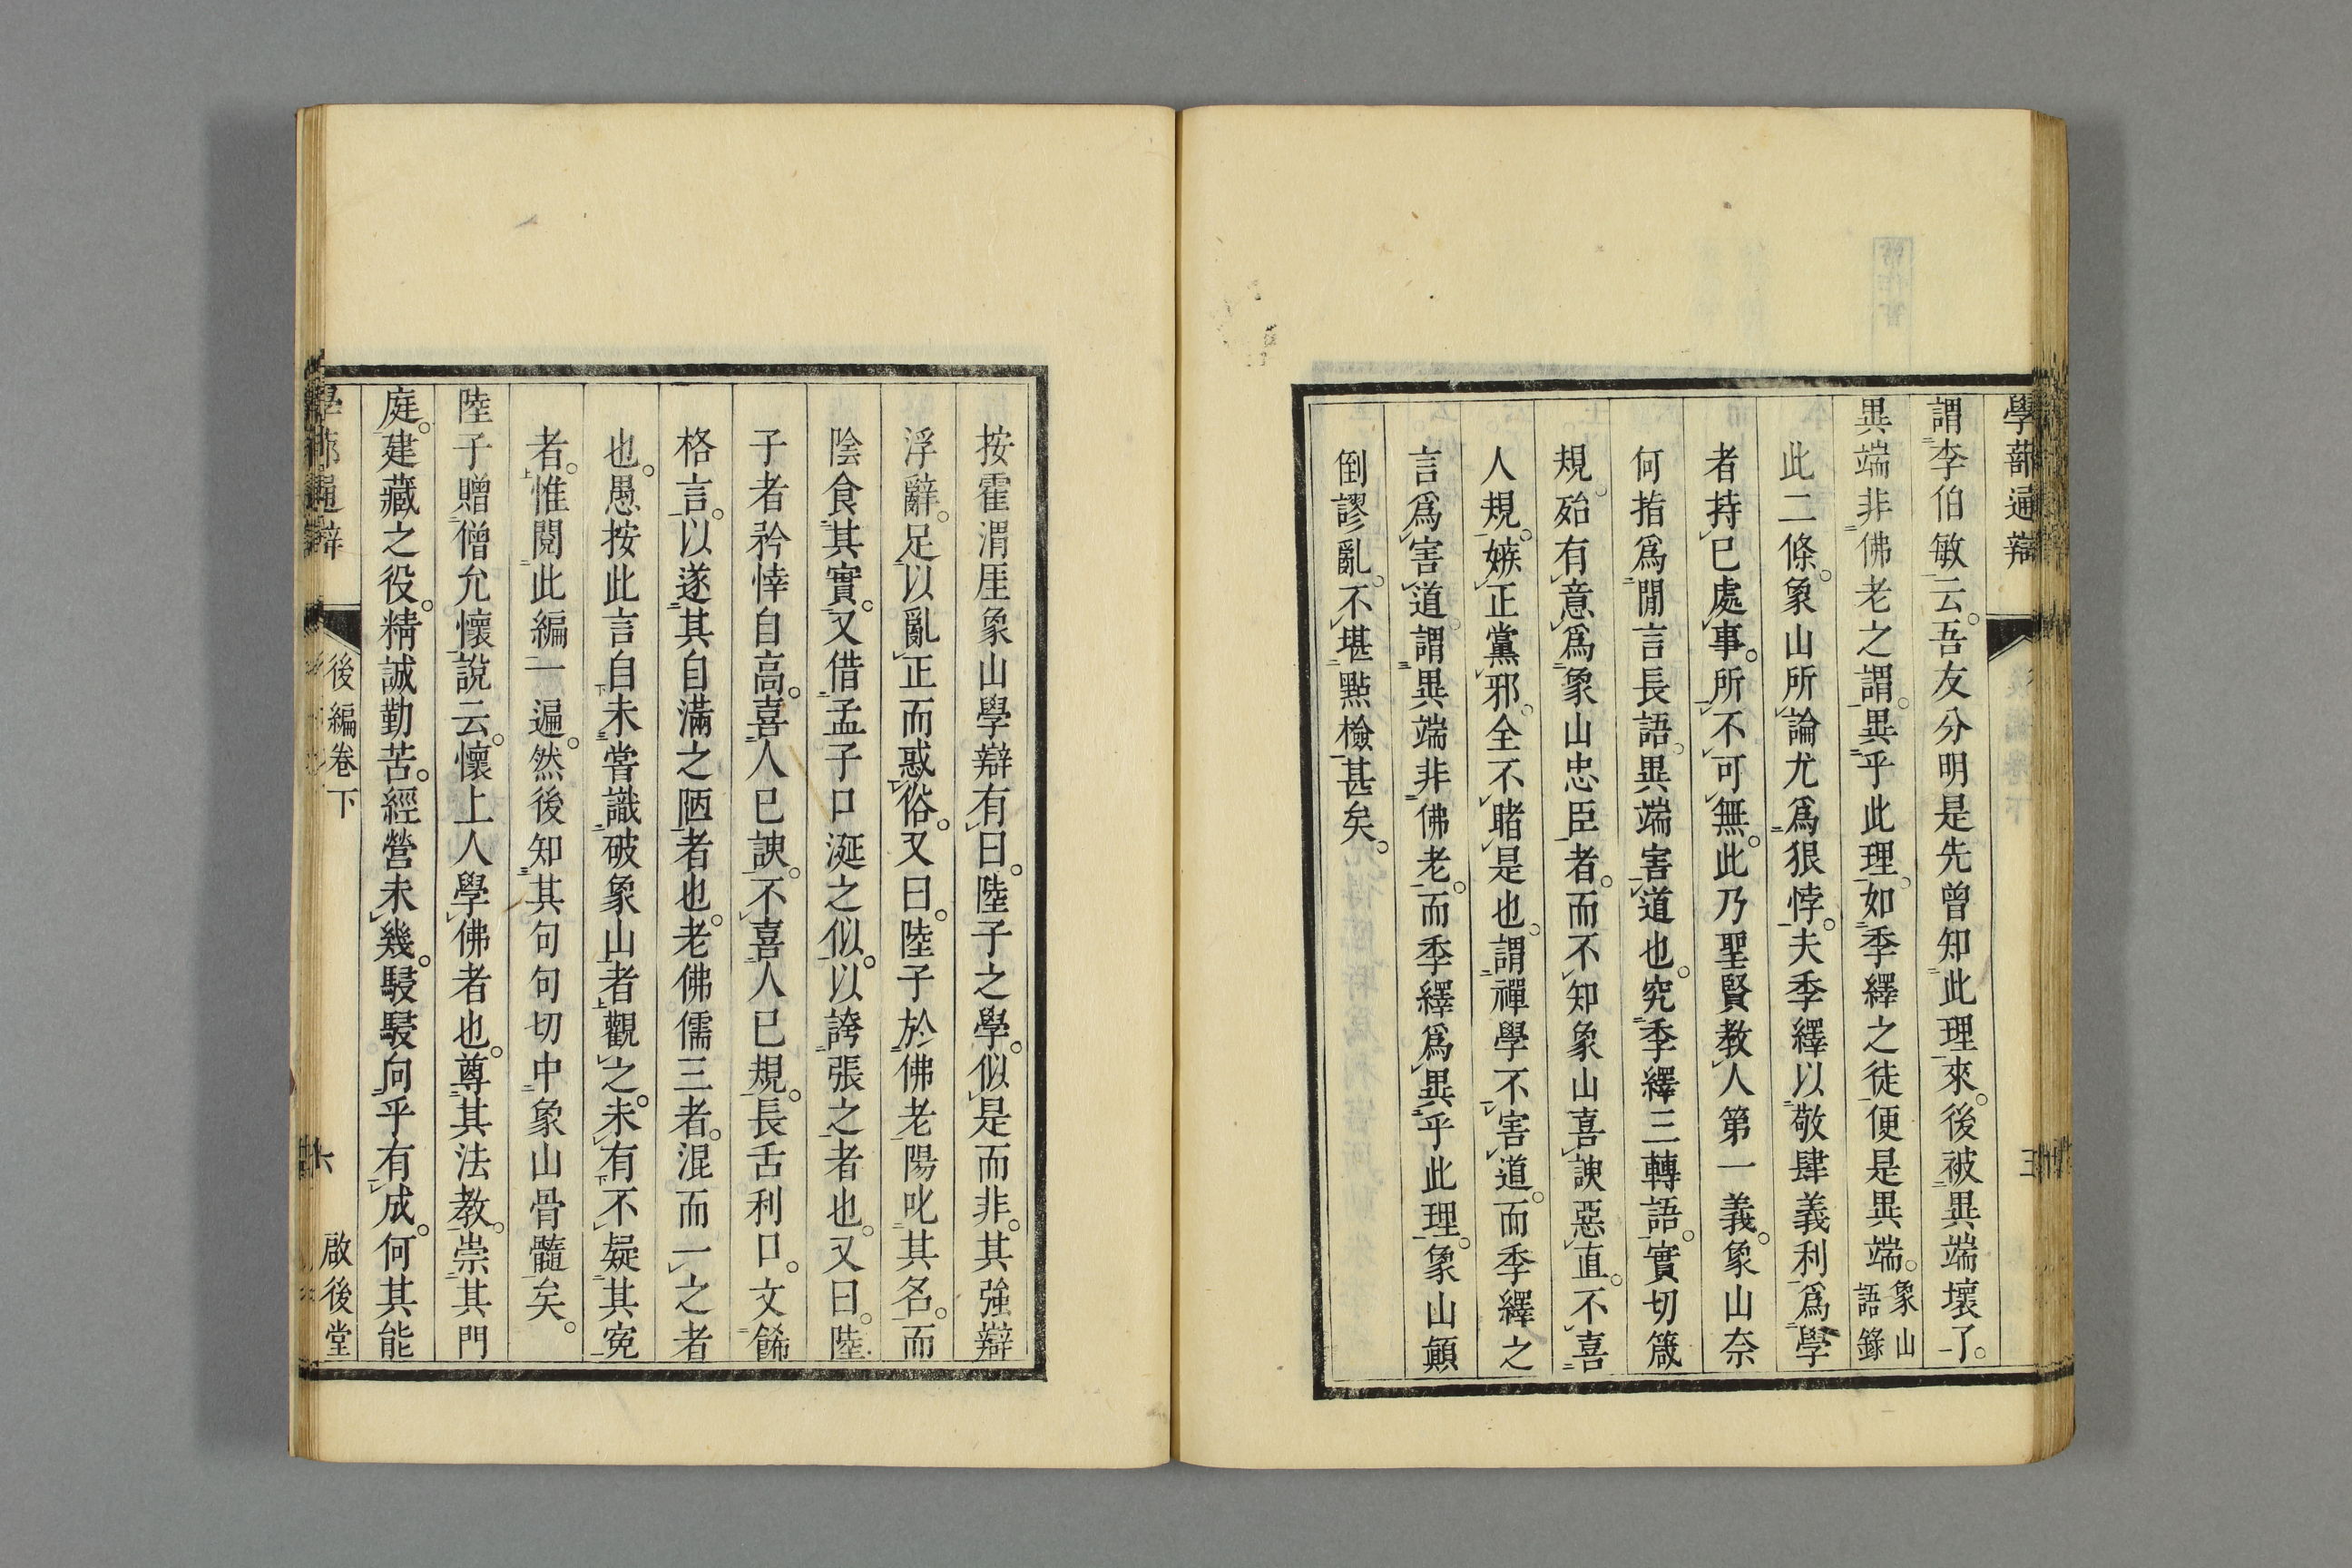 學蔀通辯
謂李伯敏云。吾友分明是先曾知此理來。後被異端壞了。
異端非佛老之謂。異乎此理。如季繹之徒便是異端。象山語錄
此二條。象山所論尤爲狠悖。夫季繹以敬肆義利爲學
者持已處事。所不可無。此乃聖賢教人第一義。象山奈
何指爲閒言長語。異端害道也。究季繹三轉語。實切箴
規。殆有意爲象山忠臣者。而不知象山喜諛惡直。不喜
人規。嫉正黨邪。全不睹是也。謂禪學不害道。而季繹之
言爲害道。謂異端非佛老。而季繹爲異乎此理。象山顚
倒謬亂。不堪點檢甚矣。
按霍渭厓象山學辯有曰。陸子之學。似是而非。其強辯
浮辭。足以亂正而惑俗。又曰。陸子於佛老陽叱其名。而
陰食其實。又借孟子口涎之似。以誇張之者也。又曰。陸
子者矜悻自高。喜人已諛。不喜人已規。長舌利口。文餙
格言。以遂其自滿之陋者也。老佛儒三者。混而一之者
也。愚按此言自未嘗識破象山者觀之。未有不疑其寃
者。惟閱此編一遍。然後知其句句切中象山骨髓矣。
陸子贈僧允懷說云。懷上人學佛者也。尊其法教。崇其門
庭。建藏之役。精誠勤苦。經營未幾。駸駸向乎有成。何其能
學蔀通辯 後編卷下 六 啟後堂